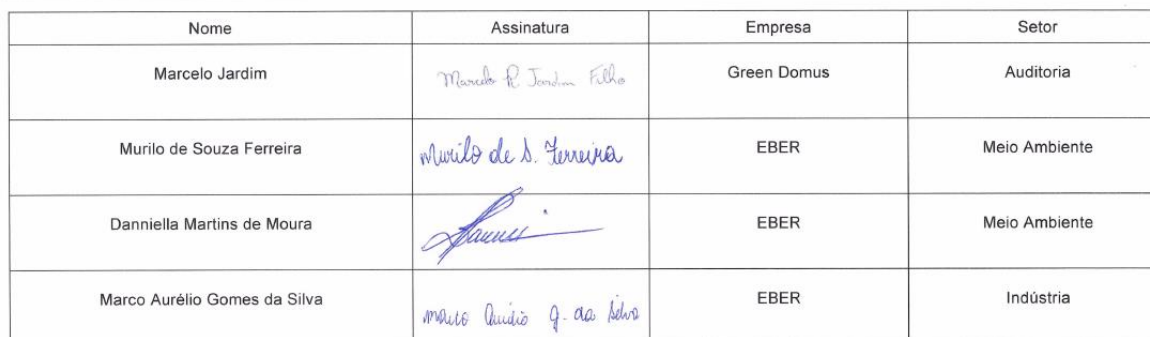 Nome Assinatura Empresa Setor
Marcelo Jardim Marcelo R Jardim Filho Green Domus Auditoria
Murilo de Souza Ferreira Murilo de S. Ferreira EBER Meio Ambiente
Danniella Martins de Moura EBER Meio Ambiente
Marco Aurélio Gomes da Silva Marco Aurélio G. da Silva EBER Indústria